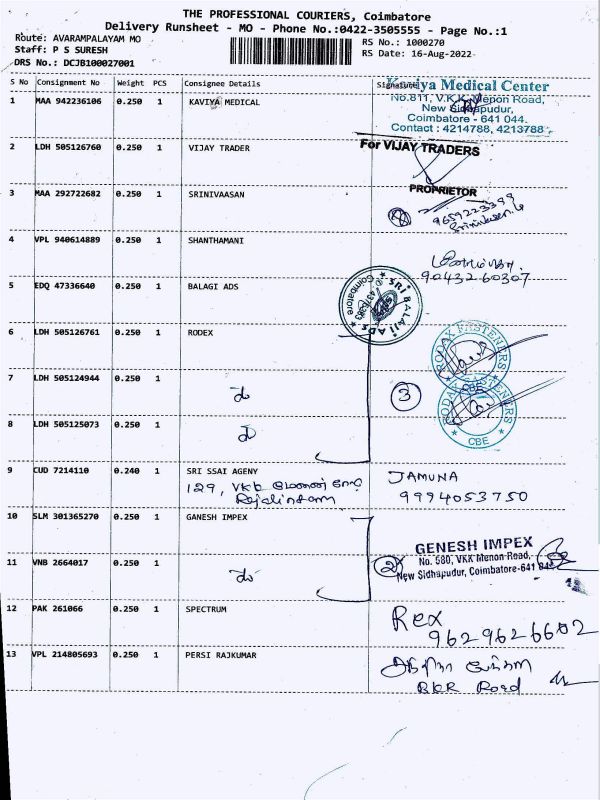 THE PROFESSIONAL COURIERS, Coimbatore
Delivery Runsheet - MO - Phone No.:0422-3505555 - Page No.:1
Route: AVARAMPALAYAM MO
RS No.: 1000270
Staff: P S SURESH
RS Date: 16-Aug-2022
DRS No.: DCJB100027001
S No Consignment No Weight PCS Consignee Details Signature
Kaviya Medical Center
1 MAA 942236106 0.250 1 KAVIYA MEDICAL
No.811, V.K.K. Menon Road,
New Sidhapudur,
Coimbatore - 641 044.
Contact : 4214788, 4213788
2 LDH 505126760 0.250 1 VIJAY TRADER
For VIJAY TRADERS
PROPRIETOR
3 MAA 292722682 0.250 1 SRINIVAASAN
9659223399
4 VPL 940614889 0.250 1 SHANTHAMANI
9043260307
5 EDQ 47336640 0.250 1 BALAGI ADS
SRI BALAJI ADS
Coimbatore
6 LDH 505126761 0.250 1 RODEX
RODAY FASTENERS
CBE
7 LDH 505124944 0.250 1
3
8 LDH 505125073 0.250 1
RODAY FASTENERS
CBE
9 CUD 7214110 0.240 1 SRI SSAI AGENY
129, VKK மேனன் ரோடு
JAMUNA
9994053750
10 SLM 301365270 0.250 1 GANESH IMPEX
GENESH IMPEX
No. 580, VKK Menon Road,
New Sidhapudur, Coimbatore-641 044
11 VNB 2664017 0.250 1
2
12 PAK 261066 0.250 1 SPECTRUM
Rex
9629626602
13 VPL 214805693 0.250 1 PERSI RAJKUMAR
RKR Road